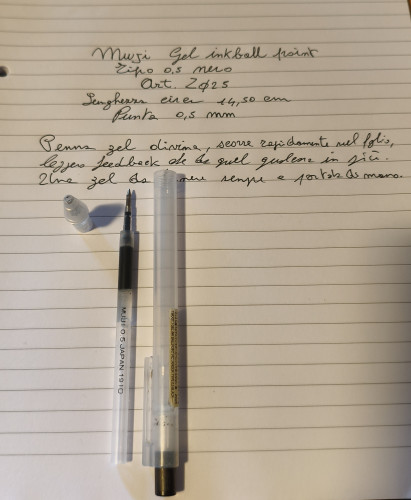 Muji Gel inkball point
Tipo 0,5 nero
Art. ZØ25
Lunghezza circa 14,50 cm
Punta 0,5 mm
Penna gel divina, scorre rapidamente nel foglio,
leggero feedback che da quel qualcosa in più.
Una gel da avere sempre a portata di mano.
MUJI 0.5 JAPAN 1910